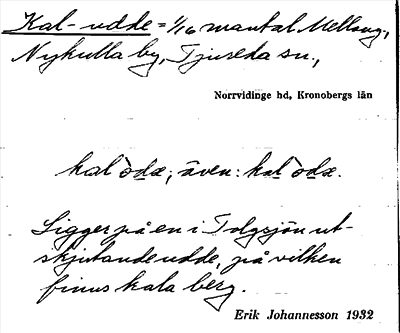 Kal-udde = 1/16 mantal Mellang.,
Nykulla by, Tjureda sn.,
Norrvidinge hd, Kronobergs län
kal òdæ; även: kal òdæ.
Ligger på en i Tolgsjön ut-
skjutande udde, på vilken
finns kala berg.
Erik Johannesson 1932